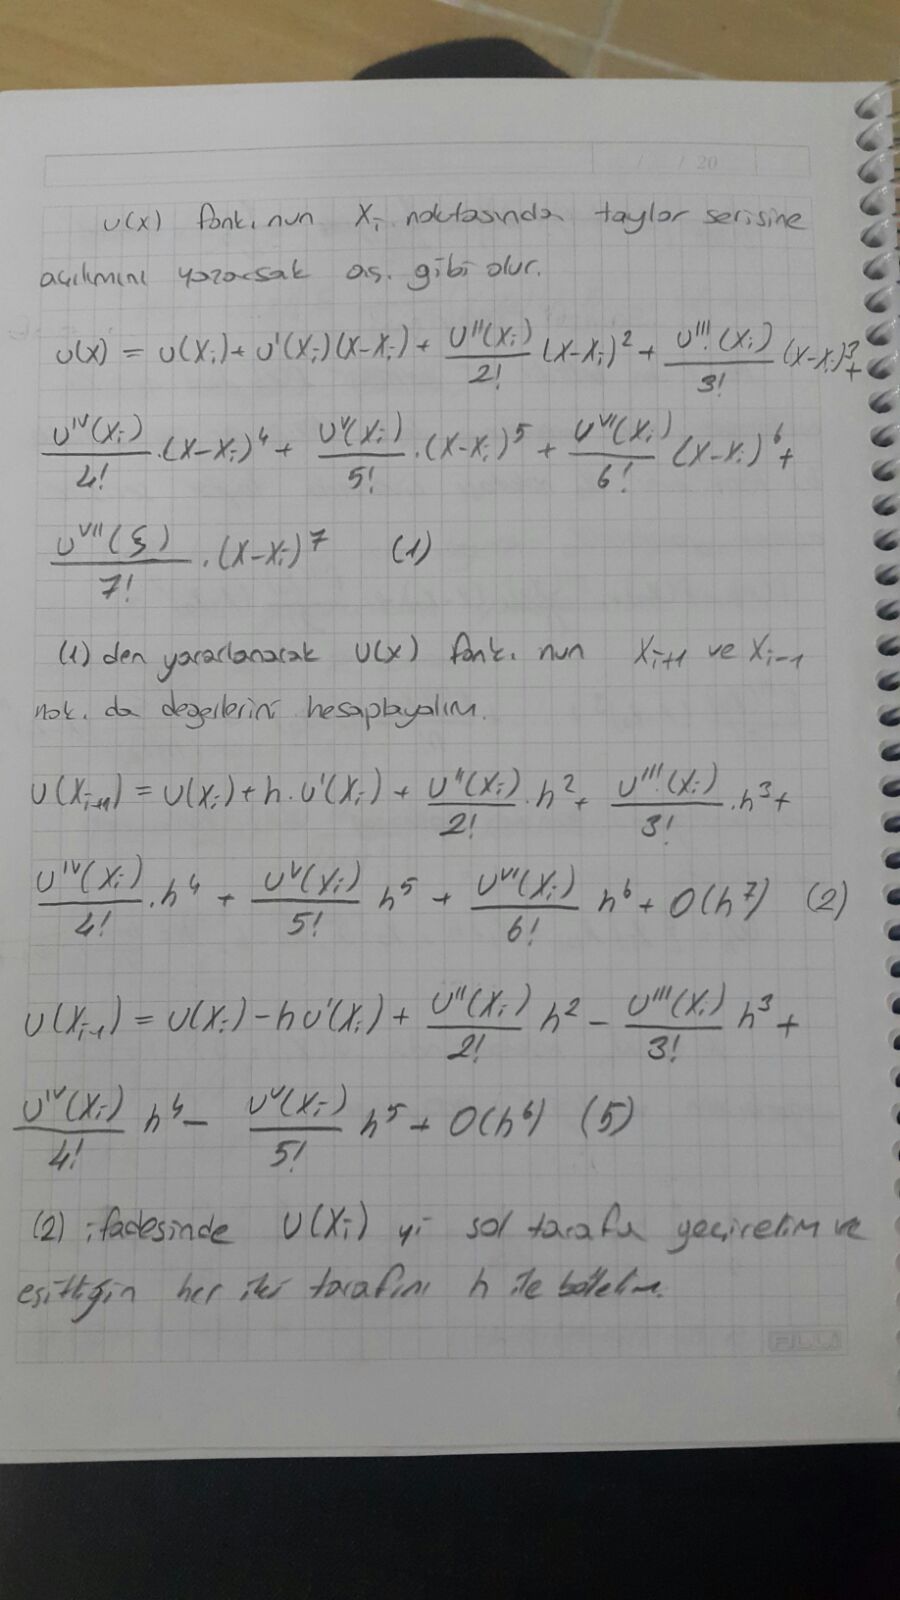 / / 20
u(x) fonk. nun Xi noktasında taylor serisine
açılımını yazarsak aş. gibi olur.
u(x) = u(Xi) + u'(Xi)(x-Xi) + u''(Xi)/2! (x-Xi)² + u'''(Xi)/3! (x-Xi)³ +
uⁱᵛ(Xi)/4! . (x-Xi)⁴ + uᵛ(Xi)/5! . (x-Xi)⁵ + uᵛⁱ(Xi)/6! (x-Xi)⁶ +
uᵛⁱⁱ(ξ)/7! . (x-Xi)⁷ (1)
(1) den yararlanarak u(x) fonk. nun Xi+1 ve Xi-1
nok. da değerlerini hesaplayalım.
u(Xi+1) = u(Xi) + h . u'(Xi) + u''(Xi)/2! . h² + u'''(Xi)/3! . h³ +
uⁱᵛ(Xi)/4! . h⁴ + uᵛ(Xi)/5! h⁵ + uᵛⁱ(Xi)/6! h⁶ + O(h⁷) (2)
u(Xi-1) = u(Xi) - h u'(Xi) + u''(Xi)/2! h² - u'''(Xi)/3! h³ +
uⁱᵛ(Xi)/4! h⁴ - uᵛ(Xi)/5! h⁵ + O(h⁶) (5)
(2) ifadesinde u(Xi) yi sol tarafa geçirelim ve
eşitliğin her iki tarafını h ile bölelim.